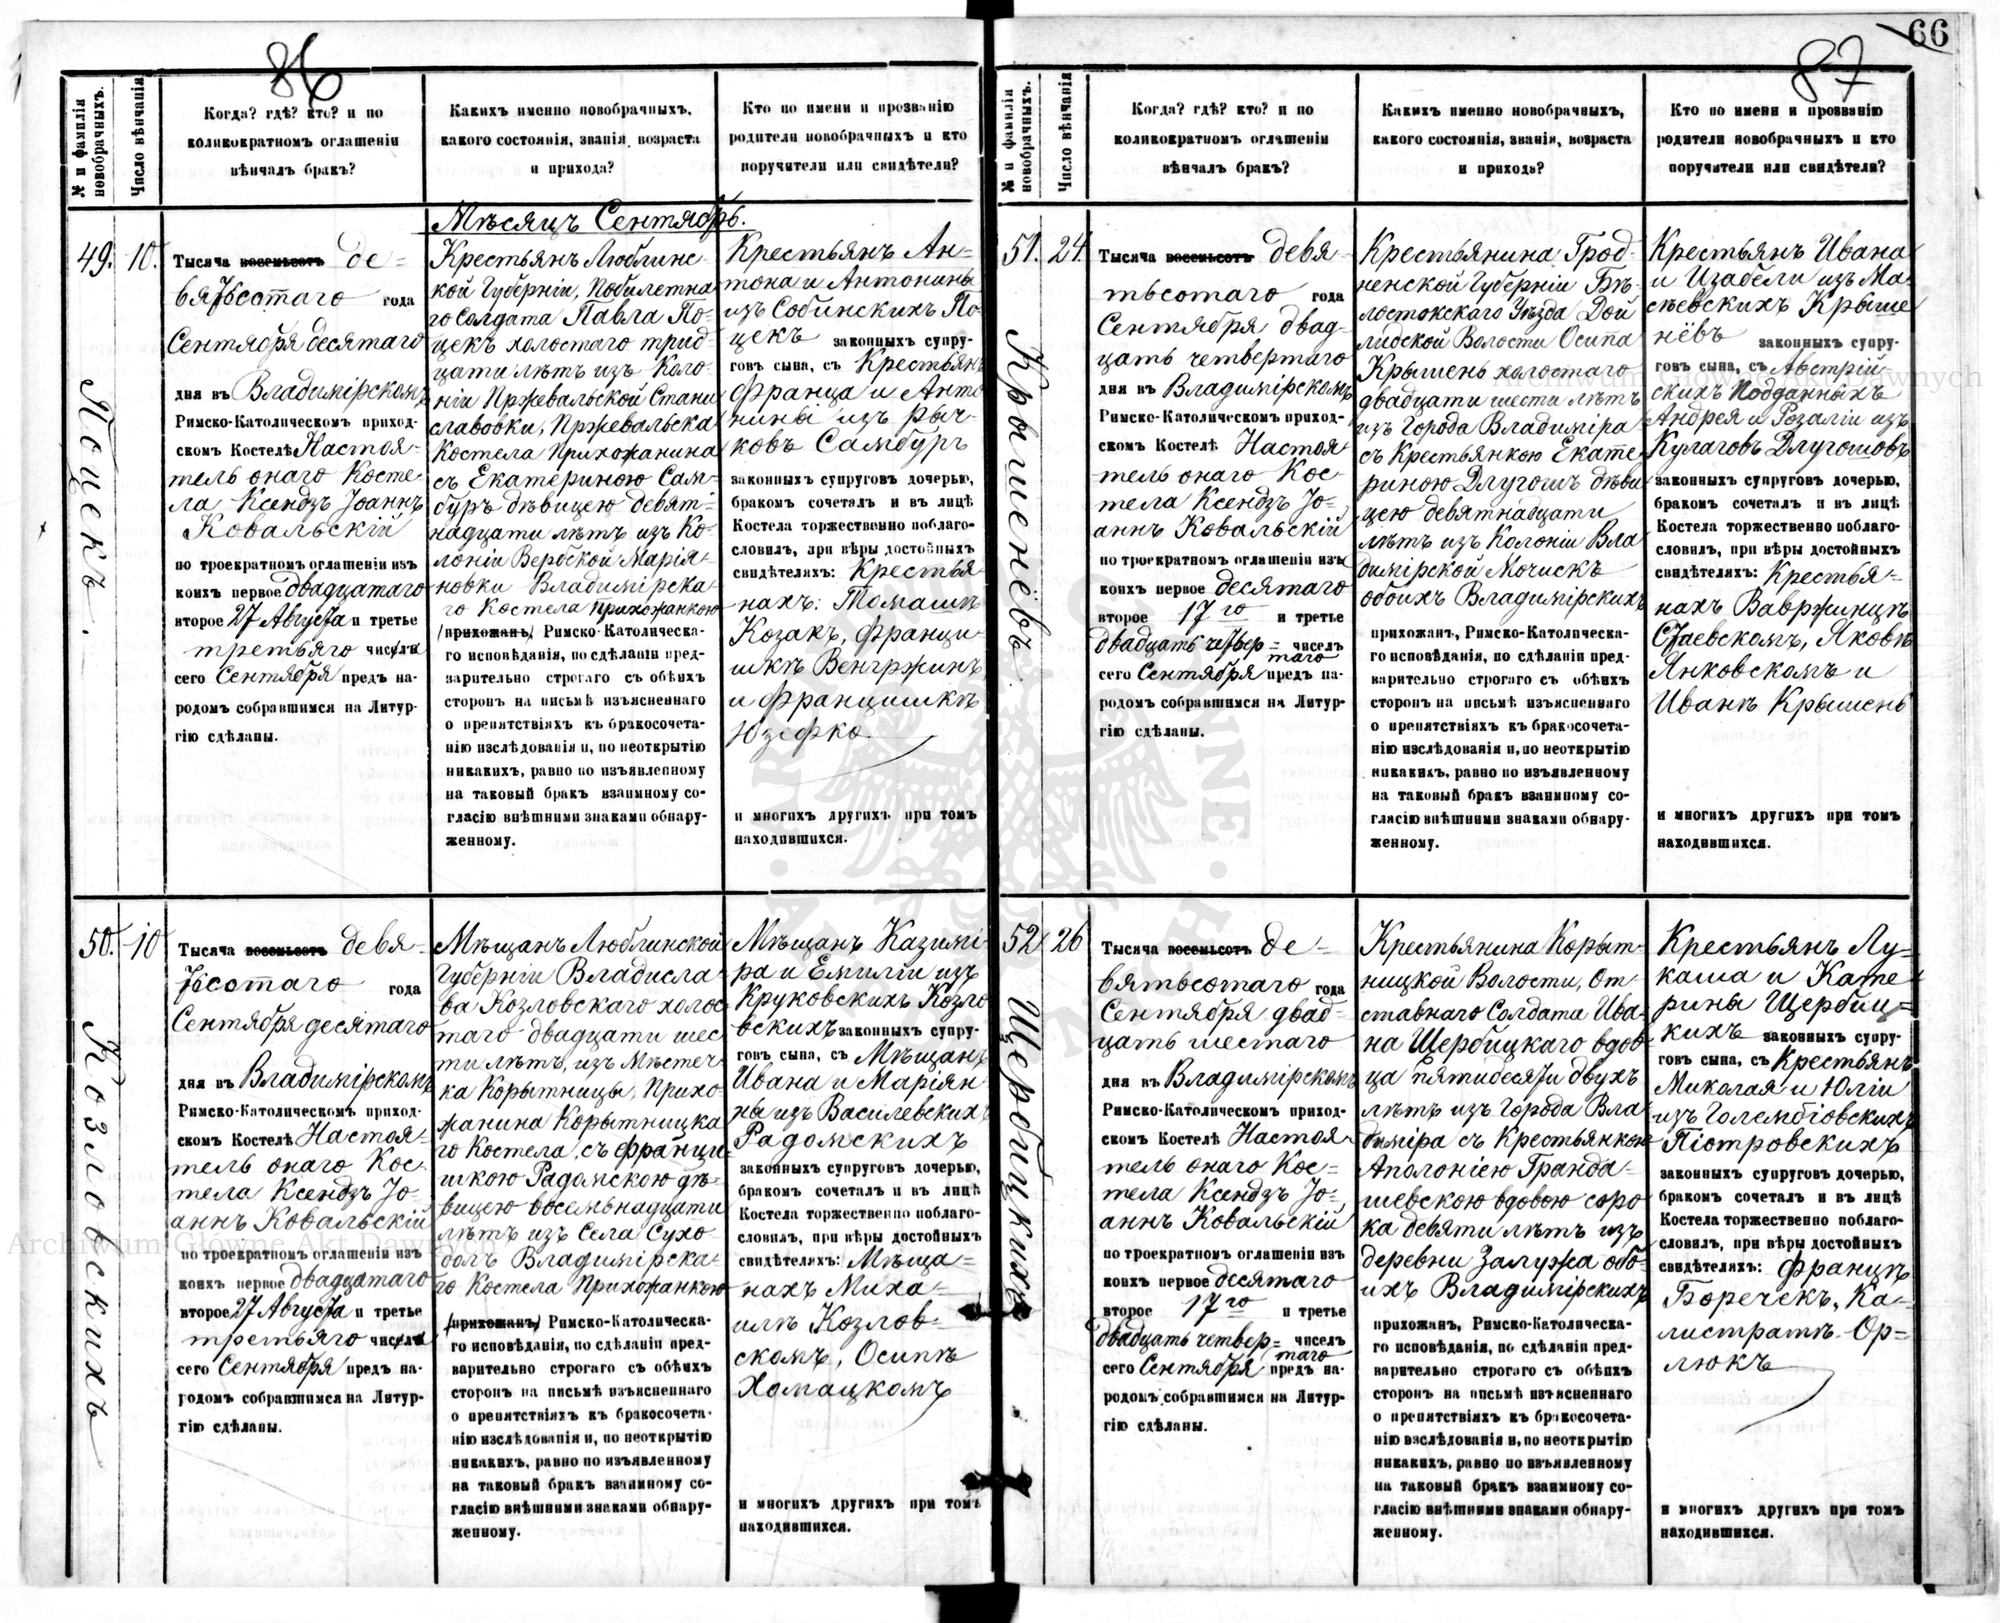 86
№ и фамилія новобрачныхъ.
Число вѣнчанія
Когда? гдѣ? кто? и по
коликократномъ оглашеніи
вѣнчалъ бракъ?
Какихъ именно новобрачныхъ,
какого состоянія, званія, возраста
и прихода?
Кто по имени и прозванію
родители новобрачныхъ и кто
поручители или свидѣтели?
Мѣсяцъ Сентябрь.
49. 10.
Поцекъ.
Тысяча восемьсотъ де=
вятьсотаго года
Сентября десятаго
дня въ Владимірскомъ
Римско-Католическомъ приход-
скомъ Костелѣ Настоя=
тель онаго Косте=
ла Ксендзъ Іоаннъ
Ковальскій
по троекратномъ оглашеніи изъ
коихъ первое двадцатаго
второе 27 Августа и третье
третьяго числа
сего Сентября предъ на-
родомъ собравшимся на Литур-
гію сдѣланы.
Крестьянъ Люблинс=
кой Губерніи, Побилетна
го Солдата Павла По=
цекъ холостаго трид=
цати лѣтъ изъ Коло=
ніи Пржевальской Стани
славовки, Пржевальска
Костела Прихожанина
съ Екатериною Сам=
буръ дѣвицею девят=
надцати лѣтъ изъ Ко=
лоніи Вербской Марія=
новки Владимірска=
го Костела прихожанкою
(прихожанъ) Римско-Католическа-
го исповѣданія, по сдѣланіи пред-
варительно строгаго съ обѣихъ
сторонъ на письмѣ изъясненнаго
о препятствіяхъ къ бракосочета-
нію изслѣдованія и, по неоткрытію
никакихъ, равно по изъявленному
на таковый бракъ взаимному со-
гласію внѣшними знаками обнару-
женному.
Крестьянъ Ан=
тона и Антонины
изъ Собинскихъ По=
цекъ законныхъ супру-
говъ сына, съ Крестьянъ
Франца и Анто
нины изъ Рыч=
ковъ Самбуръ
законныхъ супруговъ дочерью,
бракомъ сочеталъ и въ лицѣ
Костела торжественно поблаго-
словилъ, при вѣры достойныхъ
свидѣтеляхъ: Крестья
нахъ: Томашѣ
Козакъ, Франци=
шкѣ Венгржинъ,
и Францишкѣ
Юзефко.
и многихъ другихъ при томъ
находившихся.
50. 10
Козловскихъ
Тысяча восемьсотъ девя=
тьсотаго года
Сентября десятаго
дня въ Владимірскомъ
Римско-Католическомъ приход-
скомъ Костелѣ Настоя=
тель онаго Кос=
тела Ксендзъ Іо=
аннъ Ковальскій
по троекратномъ оглашеніи изъ
коихъ первое двадцатаго
второе 27 Августа и третье
третьяго числа
сего Сентября предъ на-
родомъ собравшимся на Литур-
гію сдѣланы.
Мѣщанъ Люблинской
Губерніи Владисла=
ва Козловскаго холос
таго двадцати шес=
ти лѣтъ, изъ Мѣстеч=
ка Корытницы, Прихо=
жанина Корытницка
го Костела, съ Франци=
шкою Радомскою дѣ=
вицею восемнадцати
лѣтъ изъ Села Сухо=
долъ Владимірска=
го Костела Прихожанкою
(прихожанъ) Римско-Католическа-
го исповѣданія, по сдѣланіи пред-
варительно строгаго съ обѣихъ
сторонъ на письмѣ изъясненнаго
о препятствіяхъ къ бракосочета-
нію изслѣдованія и, по неоткрытію
никакихъ, равно по изъявленному
на таковый бракъ взаимному со-
гласію внѣшними знаками обнару-
женному.
Мѣщанъ Казимі=
ра и Емиліи изъ
Круковскихъ Козло
вскихъ законныхъ супру-
говъ сына, съ Мѣщанъ
Ивана и Маріян=
ны изъ Василевскихъ
Радомскихъ
законныхъ супруговъ дочерью,
бракомъ сочеталъ и въ лицѣ
Костела торжественно поблаго-
словилъ, при вѣры достойныхъ
свидѣтеляхъ: Мѣща=
нахъ Миха=
илѣ Козлов=
скомъ, Осипѣ
Хомацкомъ
и многихъ другихъ при томъ
находившихся.
66
87
№ и фамилія новобрачныхъ.
Число вѣнчанія
Когда? гдѣ? кто? и по
коликократномъ оглашеніи
вѣнчалъ бракъ?
Какихъ именно новобрачныхъ,
какого состоянія, званія, возраста
и прихода?
Кто по имени и прозванію
родители новобрачныхъ и кто
поручители или свидѣтели?
51. 24.
Крышенёвъ
Тысяча восемьсотъ девя=
тьсотаго года
Сентября двад=
цать четвертаго
дня въ Владимірскомъ
Римско-Католическомъ приход-
скомъ Костелѣ Настоя
тель онаго Кос
тела Ксендзъ Іо=
аннъ Ковальскій
по троекратномъ оглашеніи изъ
коихъ первое десятаго
второе 17го и третье
двадцать четвер= чиселъ
таго
сего Сентября предъ на-
родомъ собравшимся на Литур-
гію сдѣланы.
Крестьянина Грод=
ненской Губерніи Бѣ=
лостокскаго Уѣзда Дой
лидской Волости Осипа
Крышень холостаго
двадцати шести лѣтъ
изъ Города Владиміра
съ Крестьянкою Екате
риною Длугошъ дѣви
цею девятнадцати
лѣтъ изъ Колоніи Вла
димірской Мочискъ
обоихъ Владимірскихъ
прихожанъ, Римско-Католическа-
го исповѣданія, по сдѣланіи пред-
варительно строгаго съ обѣихъ
сторонъ на письмѣ изъясненнаго
о препятствіяхъ къ бракосочета-
нію изслѣдованія и, по неоткрытію
никакихъ, равно по изъявленному
на таковый бракъ взаимному со-
гласію внѣшними знаками обнару-
женному.
Крестьянъ Ивана
и Изабели изъ Ма=
сѣевскихъ Крыше
нёвъ законныхъ супру-
говъ сына, съ Австрій
скихъ Подданныхъ
Андрея и Розаліи изъ
Кулаговъ Длугошовъ
законныхъ супруговъ дочерью,
бракомъ сочеталъ и въ лицѣ
Костела торжественно поблаго-
словилъ, при вѣры достойныхъ
свидѣтеляхъ: Крестья=
нахъ Вавржинцѣ
Стаевскомъ, Яковѣ
Янковскомъ и
Иванѣ Крышень
и многихъ другихъ при томъ
находившихся.
52 26
Щербицкихъ
Тысяча восемьсотъ де=
вятьсотаго года
Сентября двад=
цать шестаго
дня въ Владимірскомъ
Римско-Католическомъ приход-
скомъ Костелѣ Настоя
тель онаго Кос=
тела Ксендзъ Іо=
аннъ Ковальскій
по троекратномъ оглашеніи изъ
коихъ первое десятаго
второе 17го и третье
двадцать четвер= чиселъ
таго
сего Сентября предъ на-
родомъ собравшимся на Литур-
гію сдѣланы.
Крестьянина Корыт=
ницкой Волости, От=
ставнаго Солдата Ива=
на Щербицкаго вдов
ца пятидесяти двухъ
лѣтъ изъ Города Вла
диміра съ Крестьянкою
Аполоніею Гранда=
шевскою вдовою соро
ка девяти лѣтъ изъ
деревни Залужа обо=
ихъ Владимірскихъ
прихожанъ, Римско-Католическа-
го исповѣданія, по сдѣланіи пред-
варительно строгаго съ обѣихъ
сторонъ на письмѣ изъясненнаго
о препятствіяхъ къ бракосочета-
нію изслѣдованія и, по неоткрытію
никакихъ, равно по изъявленному
на таковый бракъ взаимному со-
гласію внѣшними знаками обнару-
женному.
Крестьянъ Лу=
каша и Кате
рины Щербиц=
кихъ законныхъ супру-
говъ сына, съ Крестьянъ
Миколая и Юліи
изъ Голембіовскихъ
Піотровскихъ
законныхъ супруговъ дочерью,
бракомъ сочеталъ и въ лицѣ
Костела торжественно поблаго-
словилъ, при вѣры достойныхъ
свидѣтеляхъ: Францѣ
Боречекъ, Ка=
листратѣ Ор=
люкъ
и многихъ другихъ при томъ
находившихся.
Archiwum Główne Akt Dawnych
Archiwum Główne Akt Dawnych